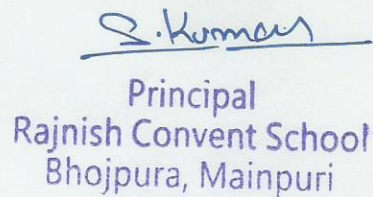 S. Kumar
Principal
Rajnish Convent School
Bhojpura, Mainpuri